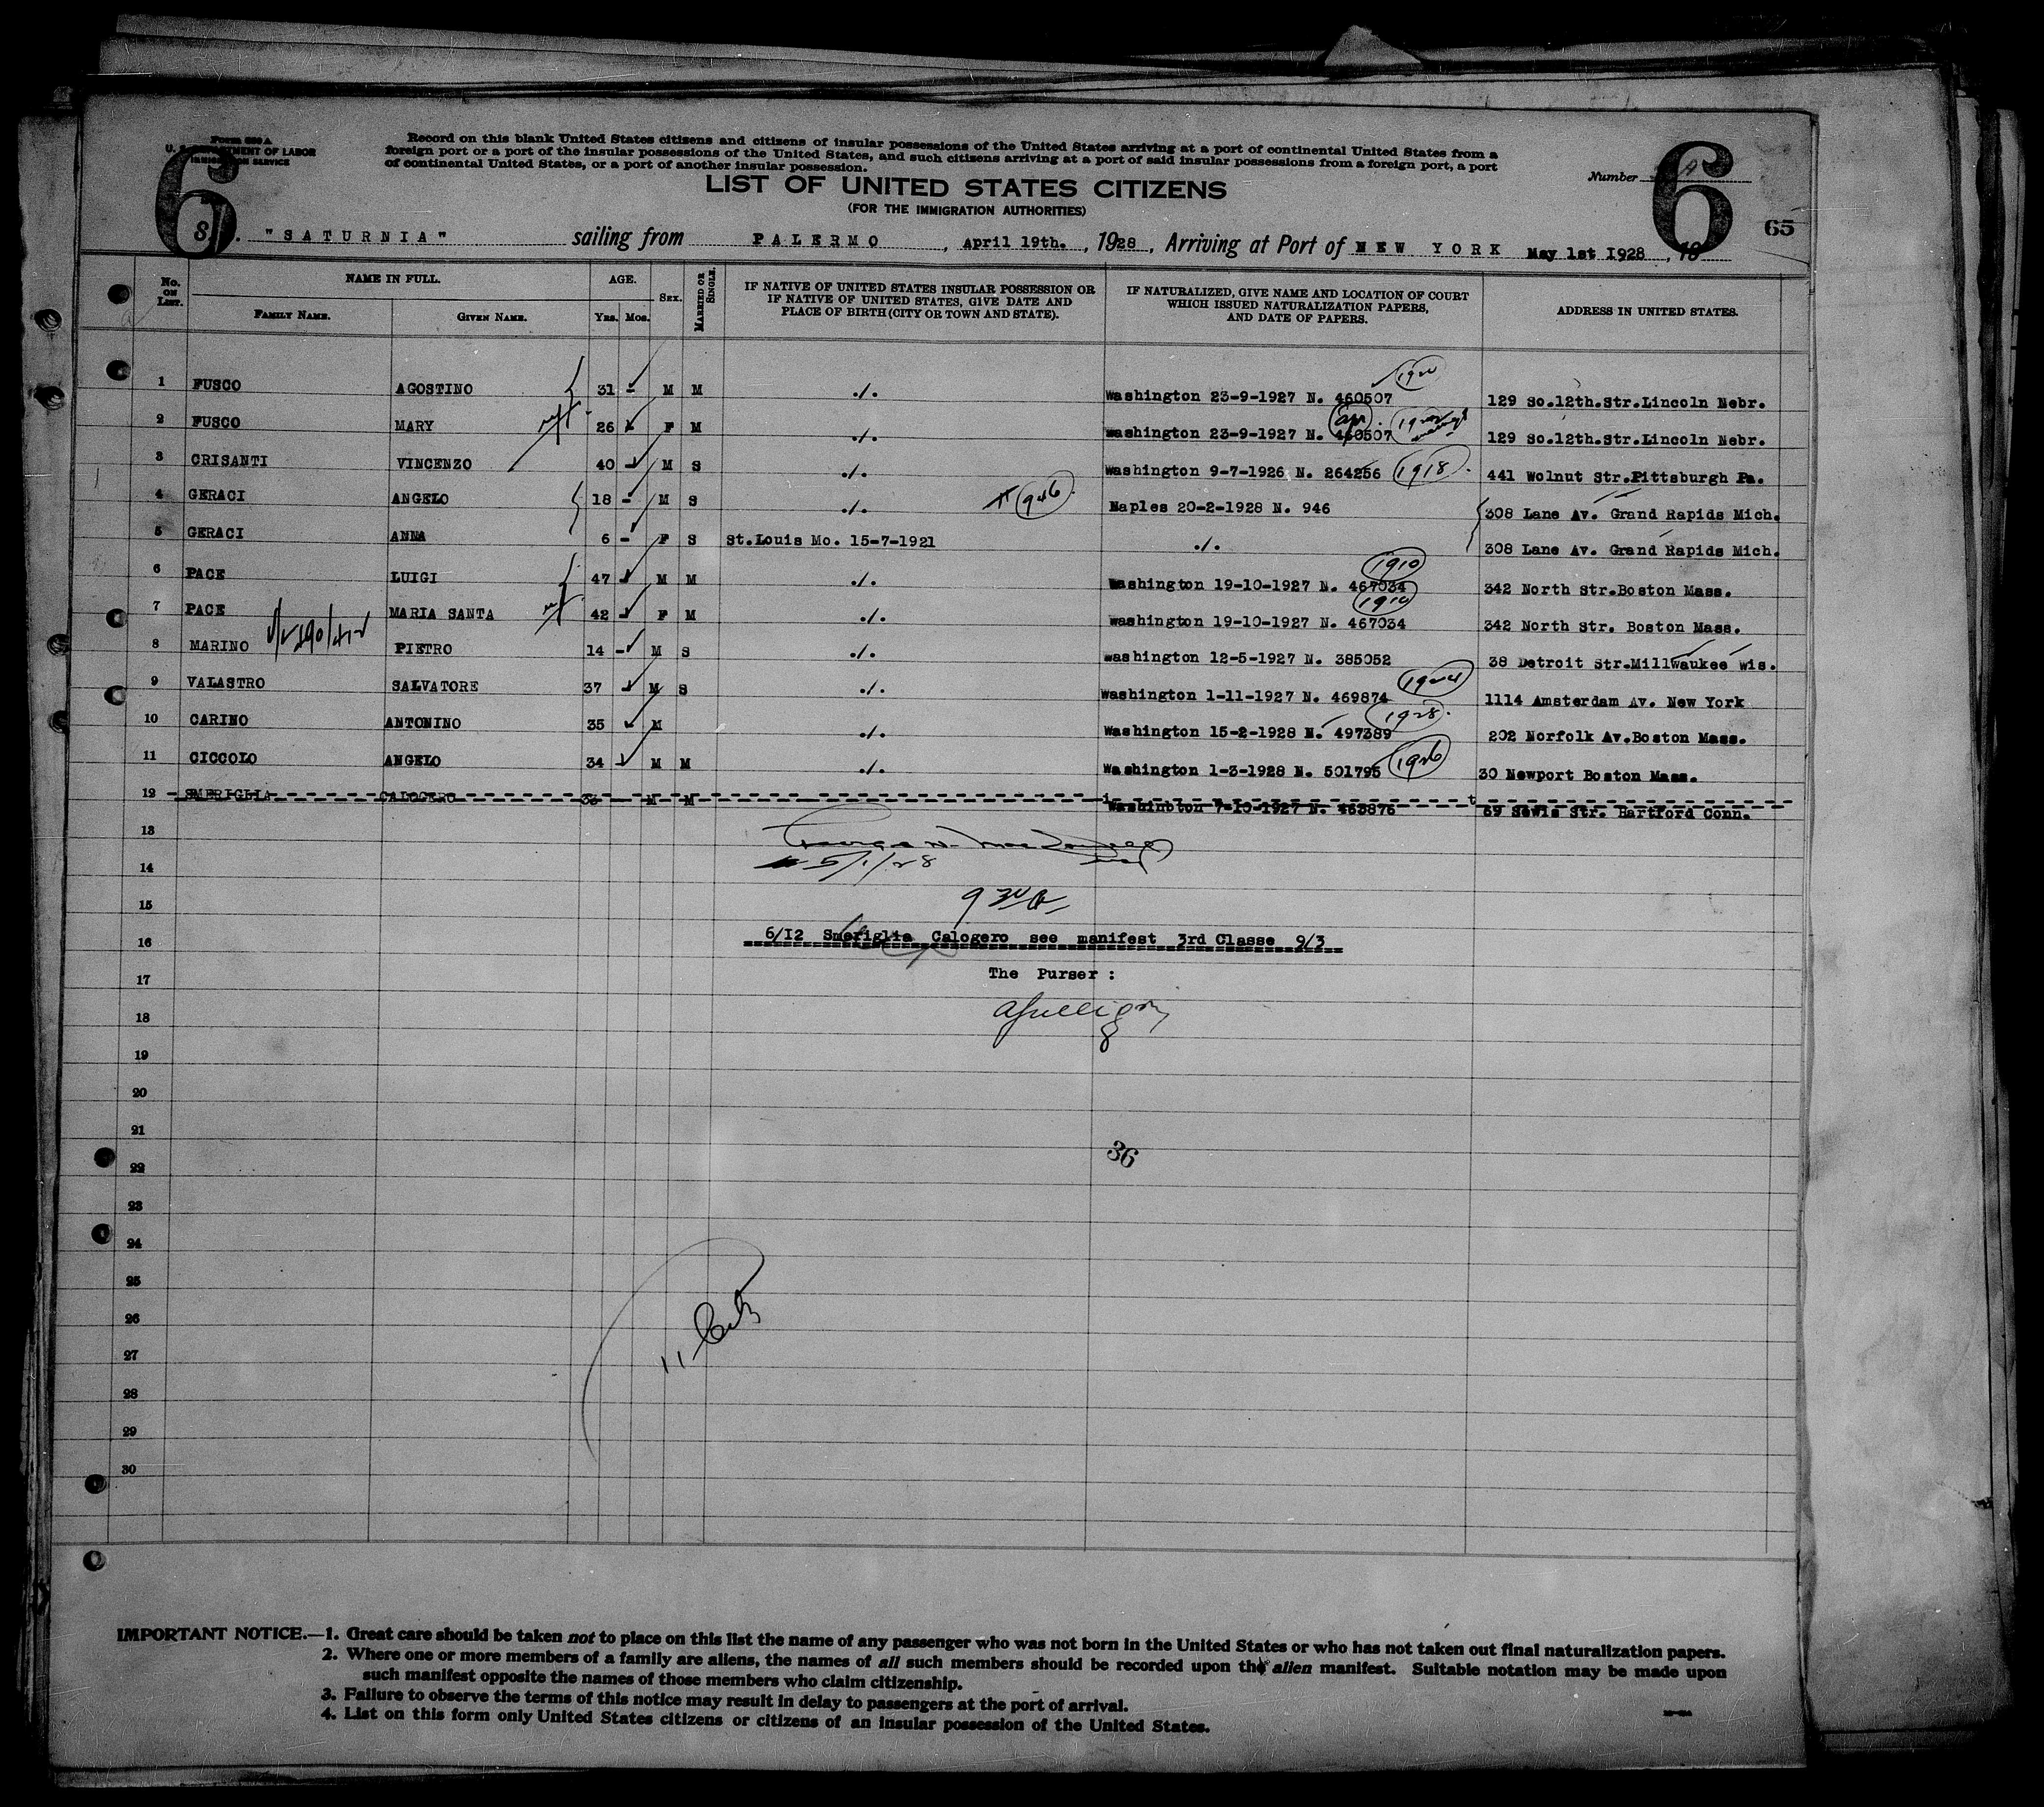 Form 630 A
U. S. DEPARTMENT OF LABOR
IMMIGRATION SERVICE
Record on this blank United States citizens and citizens of insular possessions of the United States arriving at a port of continental United States from a
foreign port or a port of the insular possessions of the United States, and such citizens arriving at a port of said insular possessions from a foreign port, a port
of continental United States, or a port of another insular possession.
6
6
Number
65
LIST OF UNITED STATES CITIZENS
(FOR THE IMMIGRATION AUTHORITIES)
S. "SATURNIA" sailing from PALERMO, April 19th., 1928, Arriving at Port of NEW YORK May 1st 1928, 19
No. ON LIST. NAME IN FULL. AGE. SEX. MARRIED OR SINGLE. IF NATIVE OF UNITED STATES INSULAR POSSESSION OR IF NATIVE OF UNITED STATES, GIVE DATE AND PLACE OF BIRTH (CITY OR TOWN AND STATE). IF NATURALIZED, GIVE NAME AND LOCATION OF COURT WHICH ISSUED NATURALIZATION PAPERS, AND DATE OF PAPERS. ADDRESS IN UNITED STATES.
FAMILY NAME. GIVEN NAME. YRS. MOS.
1 FUSCO AGOSTINO 31 - M M ./. Washington 23-9-1927 N. 460507 129 So.12th.Str.Lincoln Nebr.
2 FUSCO MARY 26 - F M ./. Washington 23-9-1927 N. 460507 129 So.12th.Str.Lincoln Nebr.
3 CRISANTI VINCENZO 40 - M S ./. Washington 9-7-1926 N. 264256 1918 441 Wolnut Str.Pittsburgh Pa.
4 GERACI ANGELO 18 - M S ./. 946 Naples 20-2-1928 N. 946 308 Lane Av. Grand Rapids Mich.
5 GERACI ANNA 6 - F S St.Louis Mo. 15-7-1921 ./. 308 Lane Av. Grand Rapids Mich.
6 PACE LUIGI 47 - M M ./. Washington 19-10-1927 N. 467034 1910 342 North Str.Boston Mass.
7 PACE MARIA SANTA 42 - F M ./. Washington 19-10-1927 N. 467034 1910 342 North Str. Boston Mass.
8 MARINO PIETRO 14 - M S ./. Washington 12-5-1927 N. 385052 38 Detroit Str.Millwaukee Wis.
9 VALASTRO SALVATORE 37 - M S ./. Washington 1-11-1927 N. 469874 1924 1114 Amsterdam Av. New York
10 CARINO ANTONINO 35 - M ./. Washington 15-2-1928 N. 497389 1928 202 Norfolk Av.Boston Mass.
11 CICCOLO ANGELO 34 - M M ./. Washington 1-3-1928 N. 501795 1926 30 Newport Boston Mass.
12 SMERIGLIA CALOGERO 33 M M Washinbton 7-10-1927 N. 463876 69 Sewis Str. Hartford Conn.
13
5/1/28
14
15
6/I2 Smeriglia Calogero see manifest 3rd Classe 9/3
16
The Purser :
17
18
19
20
21
36
22
23
24
25
26
27
28
29
30
IMPORTANT NOTICE.—1. Great care should be taken not to place on this list the name of any passenger who was not born in the United States or who has not taken out final naturalization papers.
2. Where one or more members of a family are aliens, the names of all such members should be recorded upon the alien manifest. Suitable notation may be made upon
such manifest opposite the names of those members who claim citizenship.
3. Failure to observe the terms of this notice may result in delay to passengers at the port of arrival.
4. List on this form only United States citizens or citizens of an insular possession of the United States.